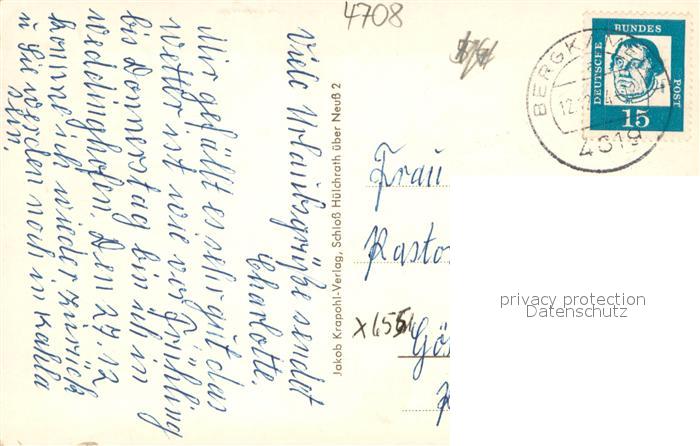 4708
Viele Urlaubsgrüße sendet
Charlotte.
Mir gefällt es sehr gut das
Wetter ist wie vor Frühling
bis Donnerstag bin ich in
Weddinghofen. Den 27.12
komme ich wieder zurück
u Sie werden noch in
sein.
Jakob Krapohl-Verlag, Schloß Hülchrath über Neuß 2
BERGKAM
12.
4619
DEUTSCHE
BUNDES
POST
15
Frau
Kasto
Gös
privacy protection
Datenschutz